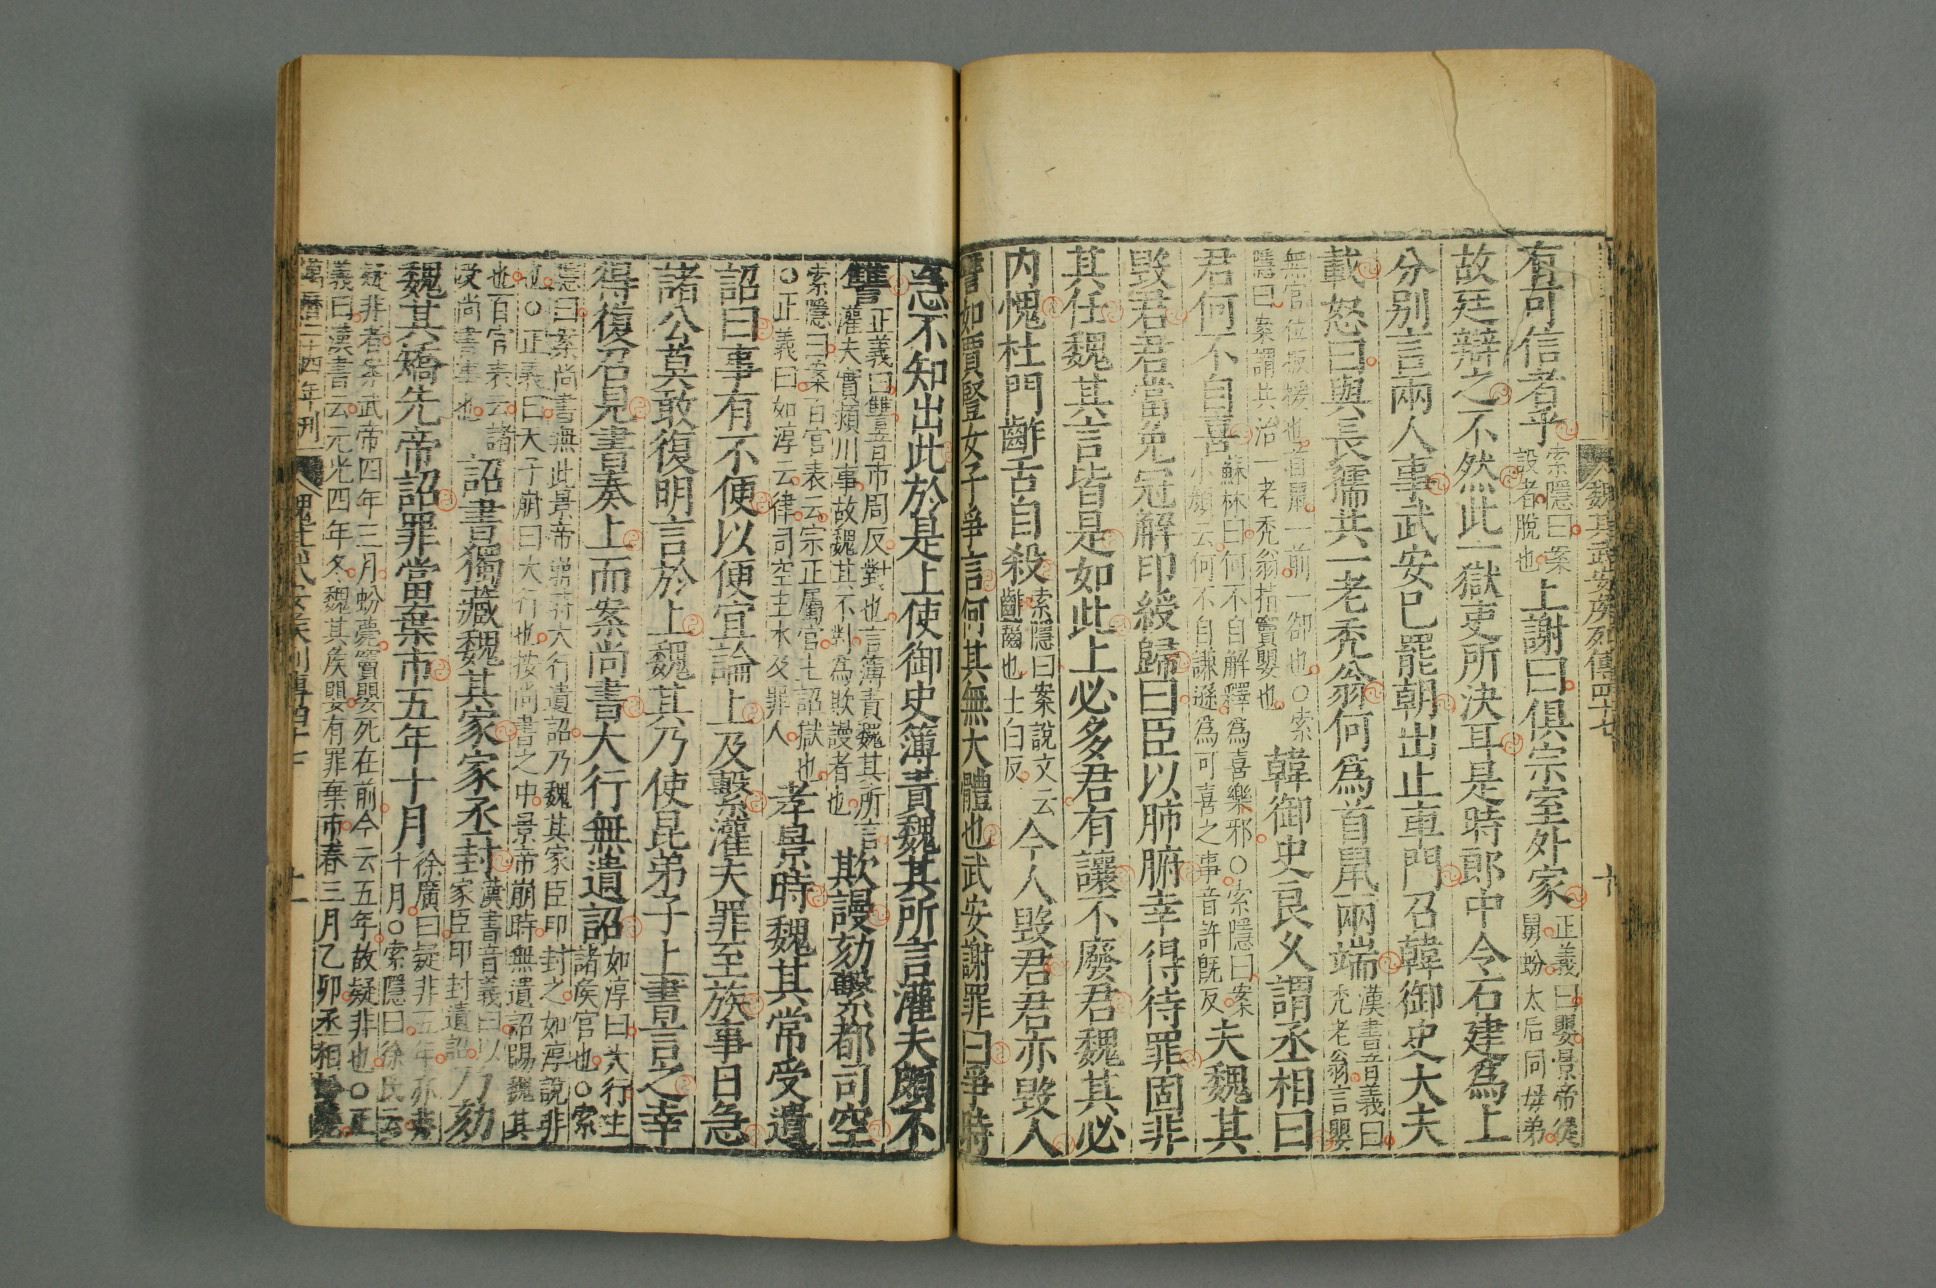 魏其武安矦列傳四十七 十
有可信者乎索隱曰案設者脫也上謝曰俱宗室外家正義曰嬰景帝從舅蚡太后同母弟
故廷辯之不然此一獄吏所決耳是時郎中令石建爲上
分别言兩人事武安巳罷朝出止車門召韓御史大夫
載怒曰與長孺共一老禿翁何爲首鼠兩端漢書音義曰禿老翁言嬰
無官位扳援也首鼠一前一卻也○索隱曰案謂共治一老禿翁指竇嬰也韓御史良久謂丞相曰
君何不自喜蘇林曰何不自解釋爲喜樂邪○索隱曰案小顔云何不自謙遜爲可喜之事音許旣反夫魏其
毀君君當免冠解印綬歸曰臣以肺腑幸得待罪固非
其任魏其言皆是如此上必多君有讓不廢君魏其必
内愧杜門齚舌自殺索隱曰案說文云齚齧也士白反今人毀君君亦毀人
譬如賈豎女子爭言何其無大體也武安謝罪曰爭時
急不知出此於是上使御史簿責魏其所言灌夫頗不
讎正義曰讎音市周反對也言簿責魏其所言灌夫實潁川事故魏其不對爲欺謾者也欺謾劾繫都司空
索隱曰案百官表云宗正屬官主詔獄也○正義曰如淳云律司空主水及罪人孝景時魏其常受遺
詔曰事有不便以便宜論上及繫灌夫罪至族事日急
諸公莫敢復明言於上魏其乃使昆弟子上書言之幸
得復召見書奏上而案尚書大行無遺詔如淳曰大行主諸矦官也○索
隱曰案尚書無此景帝崩時大行遺詔乃魏其家臣印封之如淳說非也○正義曰天子崩曰大行也按尚書之中景帝崩時無遺詔賜魏其
也百官表云諸 故尚書事也詔書獨藏魏其家家丞封漢書音義曰以家臣印封遺詔乃劾
魏其矯先帝詔罪當棄市五年十月徐廣曰疑非五年亦非十月○索隱曰徐氏云
疑非者案武帝四年三月蚡薨竇嬰死在前今云五年故疑非也○正
義曰漢書云元光四年冬魏其矦嬰有罪棄市春三月乙卯丞相
萬曆二十四年刊 魏其武安矦列傳四十七 十一